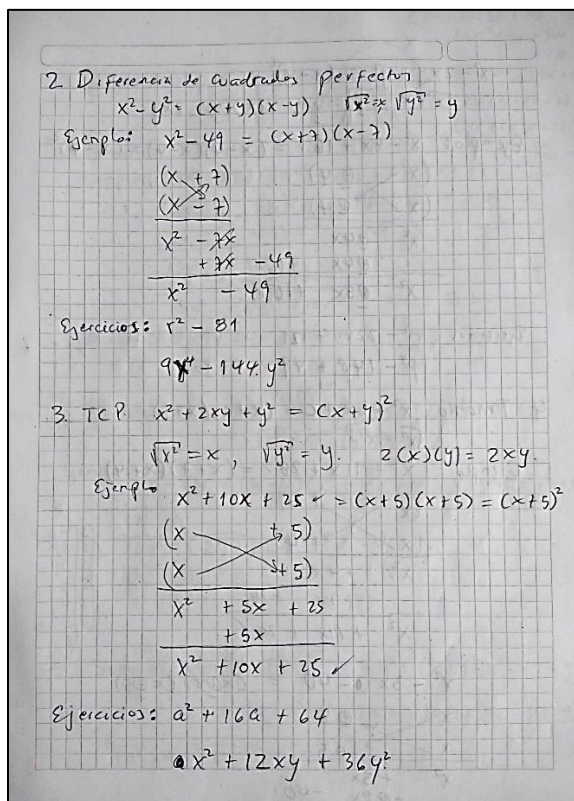 2 Diferencia de cuadrados perfectos
x² - y² = (x+y)(x-y) √x² = x, √y² = y
Ejemplo: x² - 49 = (x+7)(x-7)
(x + 7)
(x - 7)
x² - 7x
+ 7x - 49
x² - 49
Ejercicios: r² - 81
9x⁴ - 144 y²
3. TCP. x² + 2xy + y² = (x+y)²
√x² = x , √y² = y. 2(x)(y) = 2xy.
Ejemplo x² + 10x + 25 ✓ = (x+5)(x+5) = (x+5)²
(x + 5)
(x + 5)
x² + 5x + 25
+ 5x
x² + 10x + 25 ✓
Ejercicios: a² + 16a + 64
x² + 12xy + 36y²